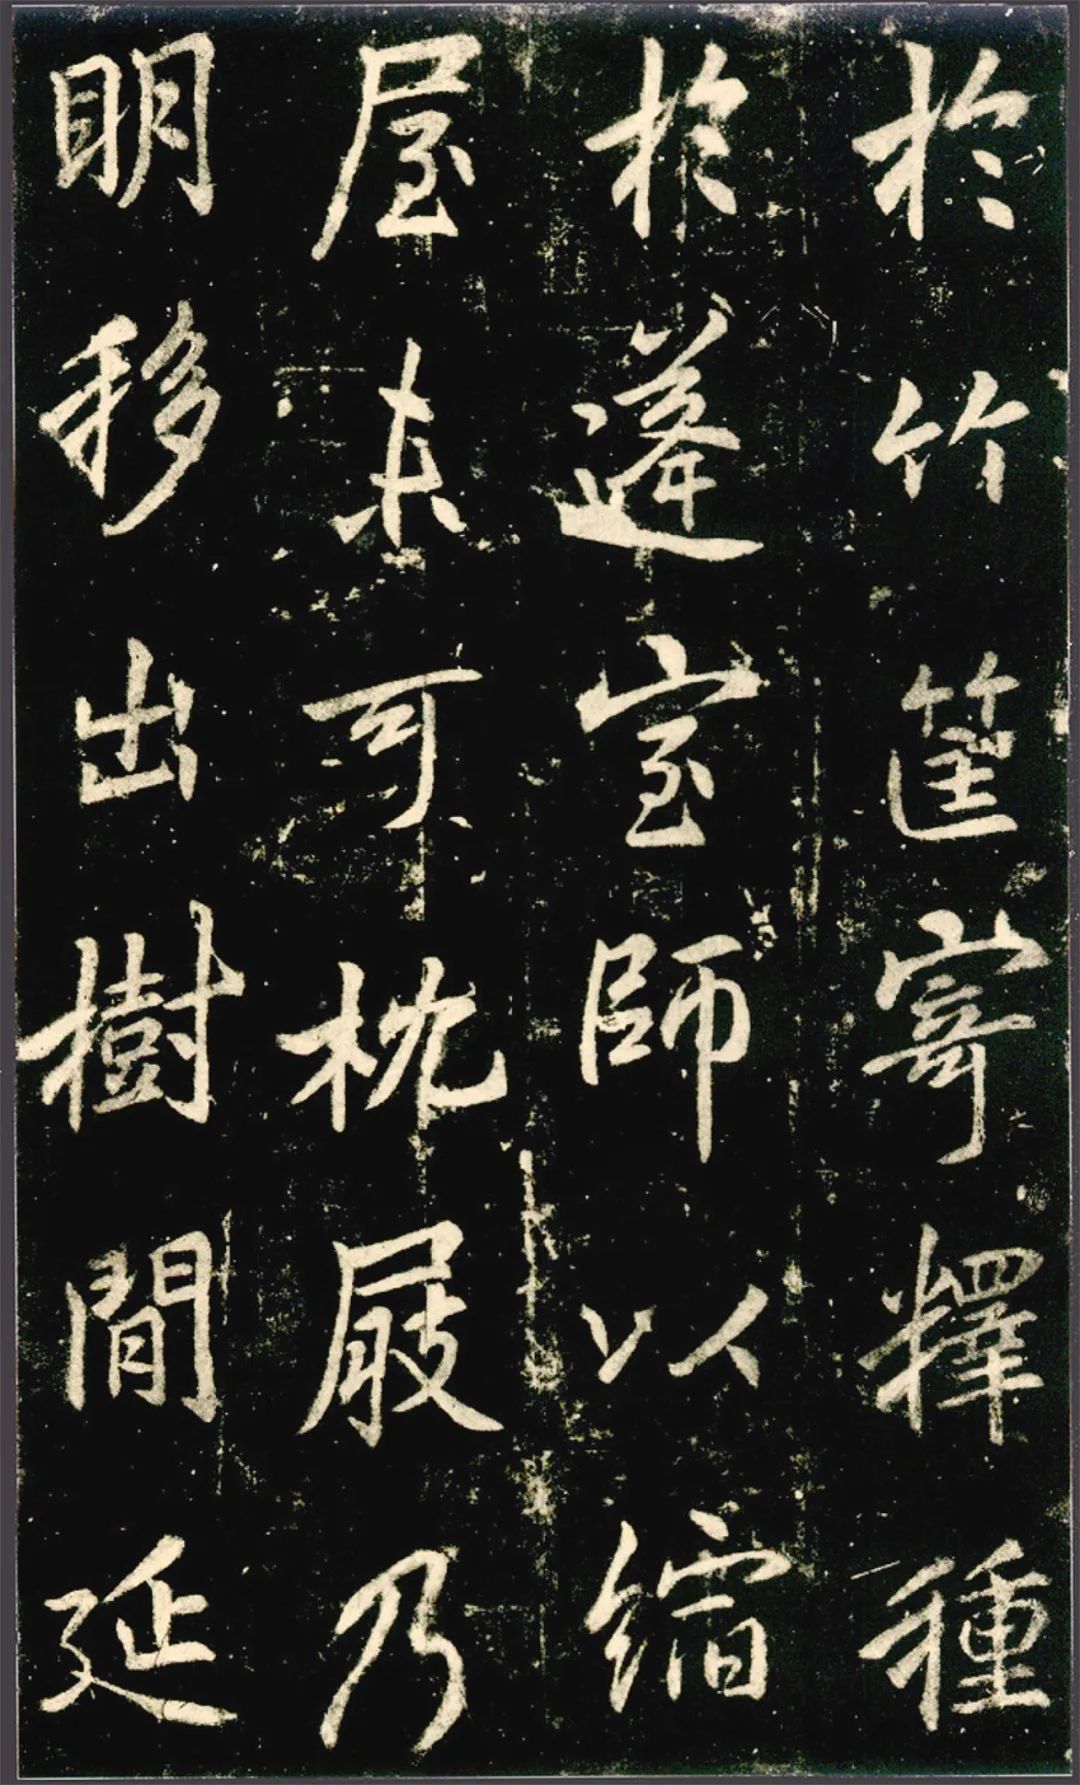 於竹筐寄釋種
於蓬室師以縮
屋未可枕乃
明移出樹間延